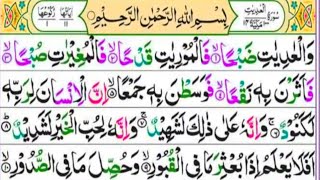 بِسْمِ اللّٰهِ الرَّحْمٰنِ الرَّحِيْمِ
وَالْعٰدِيٰتِ ضَبْحًا ۙ فَالْمُوْرِيٰتِ قَدْحًا ۙ فَالْمُغِيْرٰتِ صُبْحًا ۙ
فَاَثَرْنَ بِهٖ نَقْعًا ۙ فَوَسَطْنَ بِهٖ جَمْعًا ۙ اِنَّ الْاِنْسَانَ لِرَبِّهٖ
لَكَنُوْدٌ ۚ وَاِنَّهٗ عَلٰى ذٰلِكَ لَشَهِيْدٌ ۚ وَاِنَّهٗ لِحُبِّ الْخَيْرِ لَشَدِيْدٌ ؕ
اَفَلَا يَعْلَمُ اِذَا بُعْثِرَ مَا فِى الْقُبُوْرِ ۙ وَحُصِّلَ مَا فِى الصُّدُوْرِ ۙ